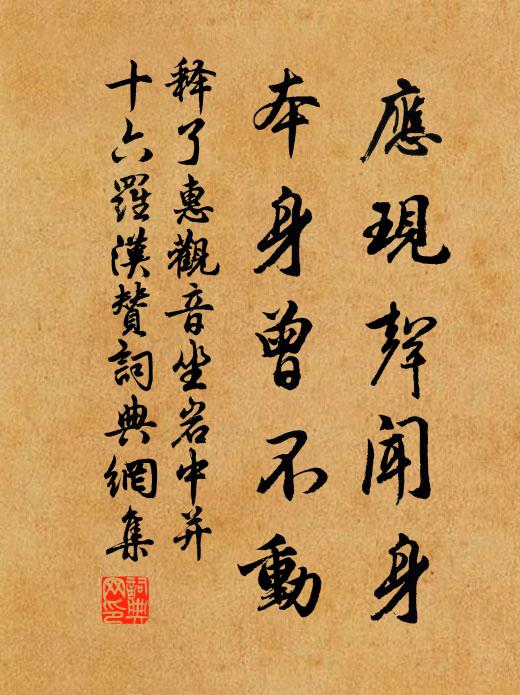 應現聲聞身
本身曾不動
释了惠觀音坐岩中并
十六羅漢贊詞典網集
詞典網印